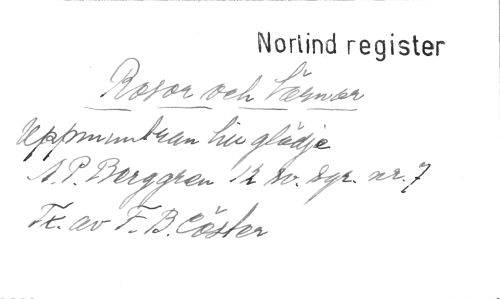 Norlind register
Rosor och Tårnar
Uppmuntran till glädje
A.P. Berggren 12 sv. dgr. nr. 7
Tr. av F.B. Cöster